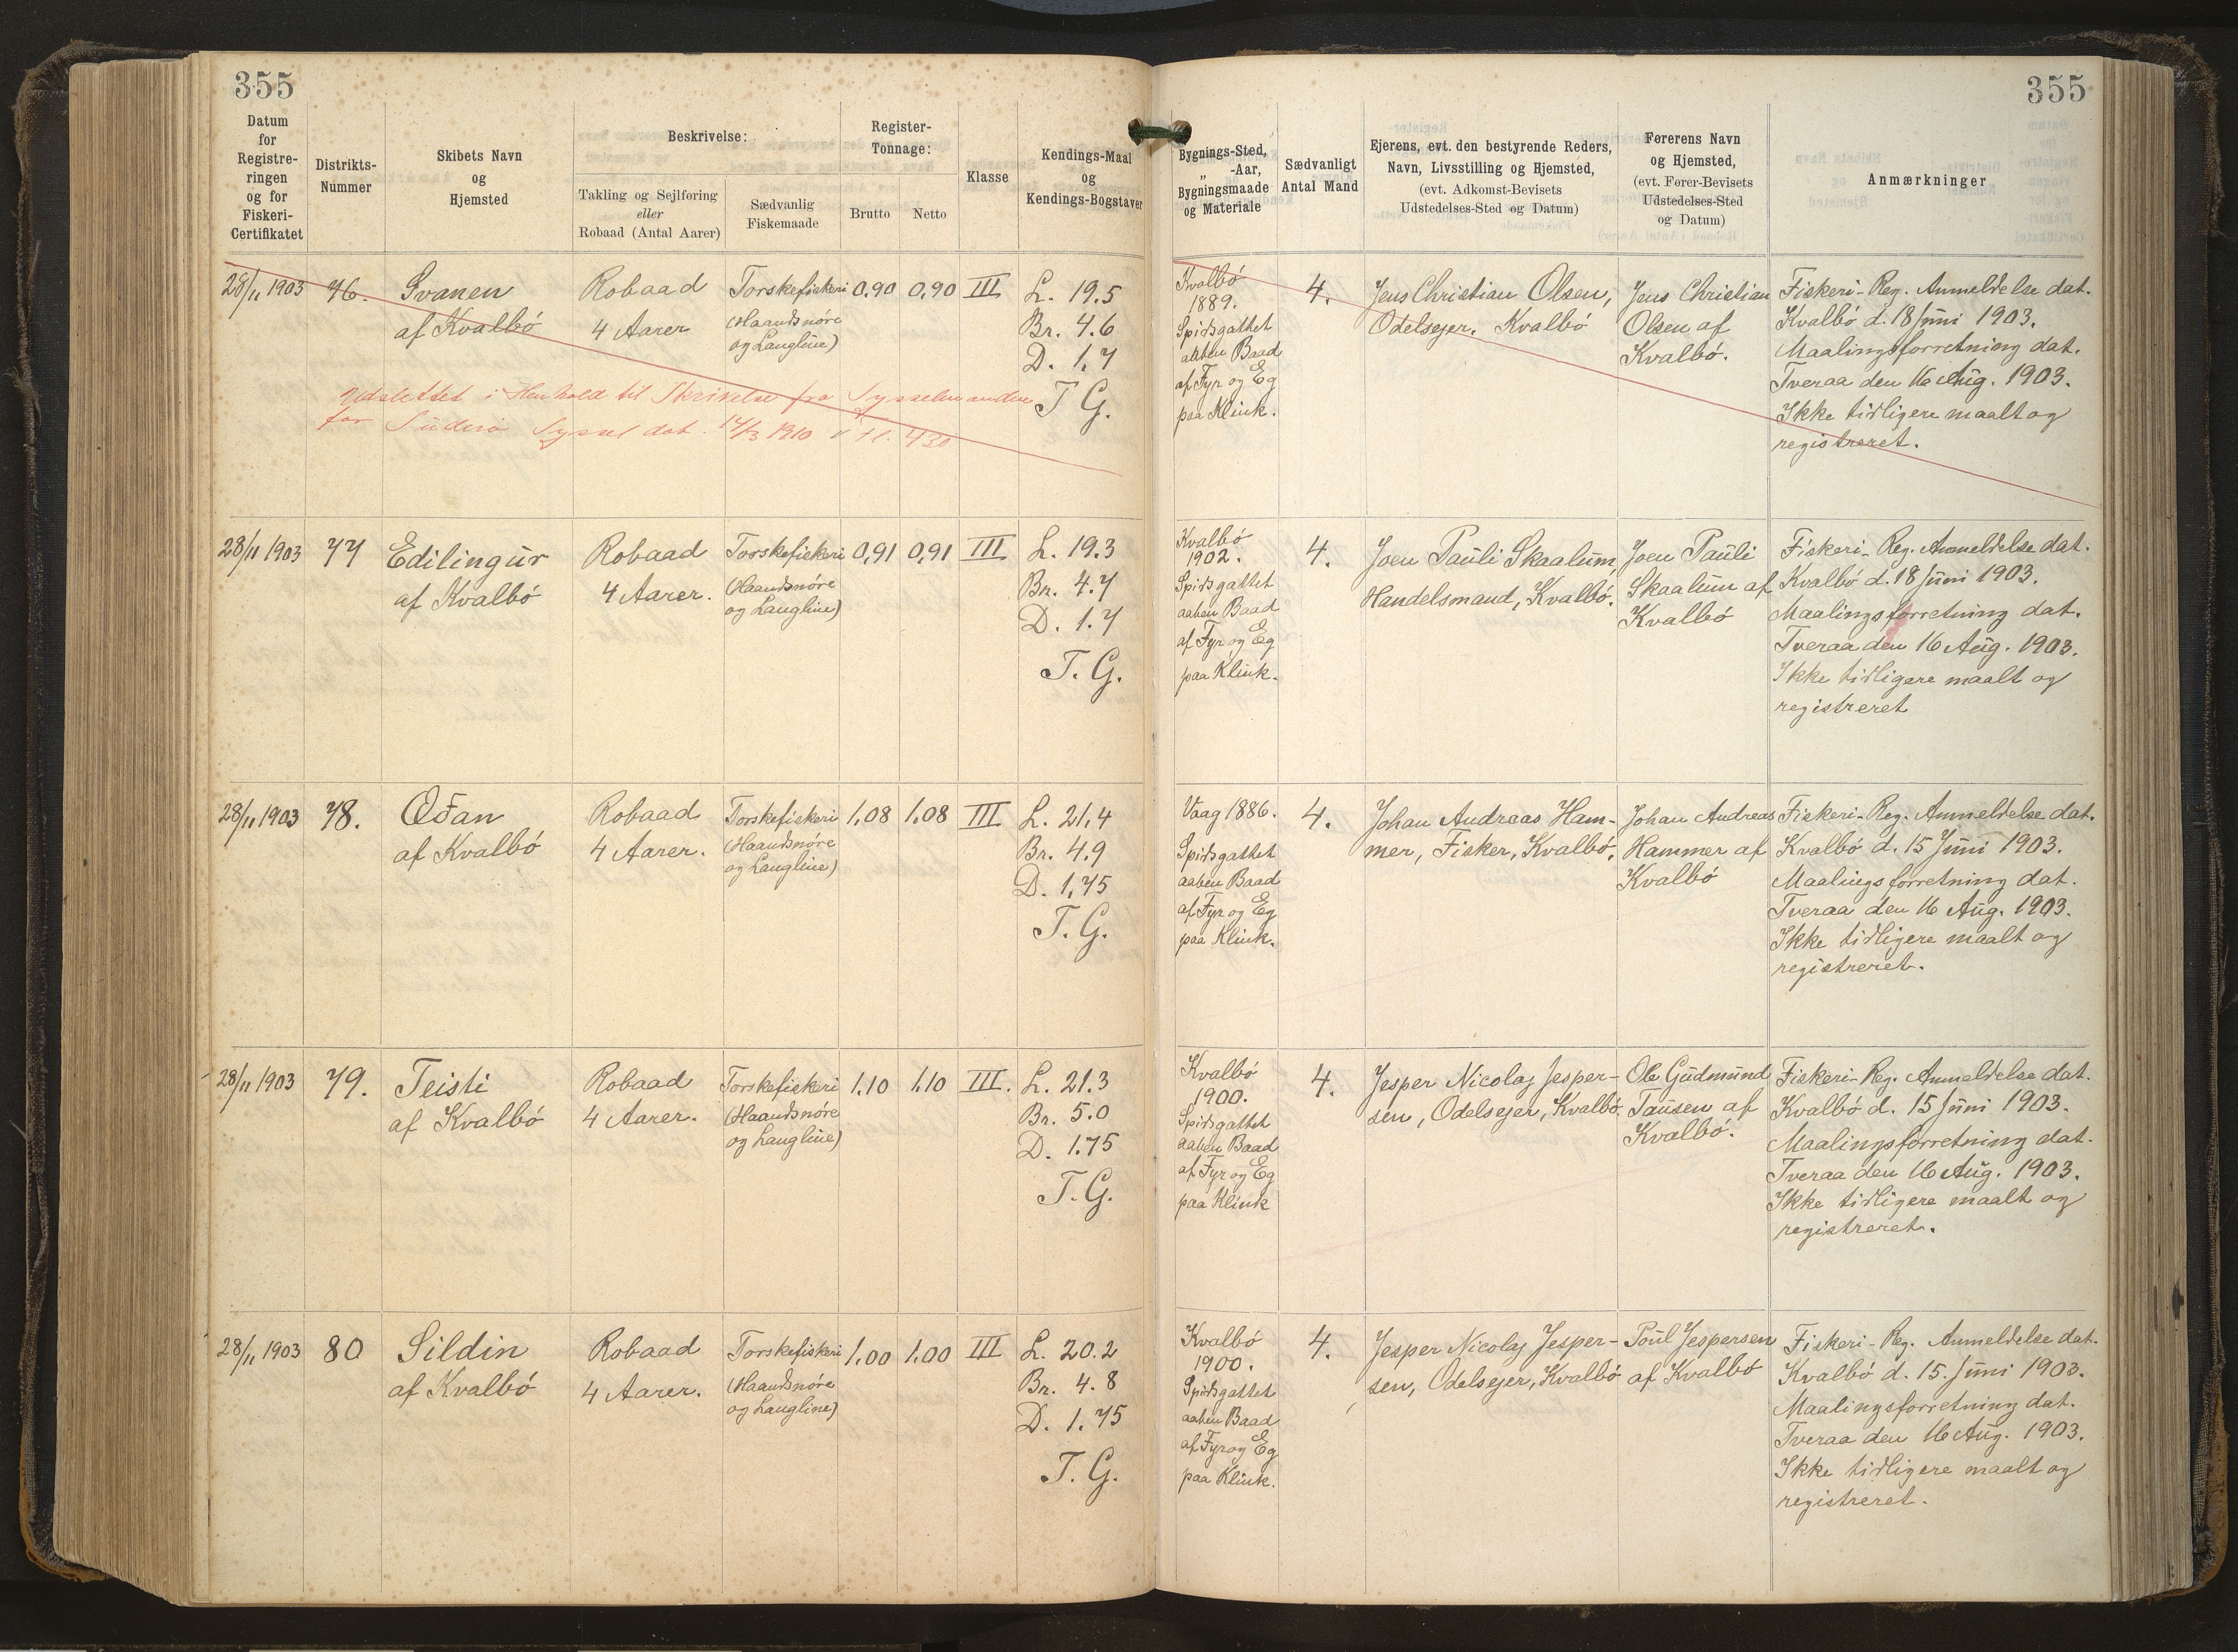 355
355
Datum
for
Registre-
ringen
og for
Fiskeri-
Certifikatet
Distrikts-
Nummer
Skibets Navn
og
Hjemsted
Beskrivelse:
Takling og Sejlføring
eller
Robaad (Antal Aarer)
Sædvanlig
Fiskemaade
Register-
Tonnage:
Brutto
Netto
Klasse
Kendings-Maal
og
Kendings-Bogstaver
Bygnings-Sted,
„ -Aar,
Bygningsmaade
og Materiale
Sædvanligt
Antal Mand
Ejerens, evt. den bestyrende Reders,
Navn, Livsstilling og Hjemsted,
(evt. Adkomst-Bevisets
Udstedelses-Sted og Datum)
Førerens Navn
og Hjemsted,
(evt. Fører-Bevisets
Udstedelses-Sted
og Datum)
Anmærkninger
28/11 1903
76.
Svanen
af Kvalbö
Robaad
4 Aarer
Torskefiskeri
(Haandsnöre
og Langline)
0,90
0,90
III
L. 19.5
Br. 4.6
D. 1.7
T G.
Udslettet i Henhold til Skrivelse fra Sysselmanden
for Süderö Syssel dat. 14/3 1910
Kvalbö
1889.
Spidsgattet
aaben Baad
af Fyr og Eg
paa Klink.
4.
Jens Christian Olsen,
Odelsejer, Kvalbö
Jens Christian
Olsen af
Kvalbö.
Fiskeri-Reg. Anmeldelse dat.
Kvalbö d. 18 Jüni 1903.
Maalingsforretning dat.
Tveraa den 16 Aüg. 1903.
Ikke tidligere maalt og
registreret.
28/11 1903
77
Edilingür
af Kvalbö
Robaad
4 Aarer.
Torskefiskeri
(Haandsnöre
og Langline)
0,91
0,91
III
L. 19.3
Br. 4.7
D. 1.7
T. G.
Kvalbö
1902.
Spidsgattet
aaben Baad
af Fyr og Eg
paa Klink.
4.
Joen Paüli Skaalüm,
Handelsmand, Kvalbö.
Joen Paüli
Skaalüm af
Kvalbö
Fiskeri-Reg. Anmeldelse dat.
Kvalbö d. 18 Jüni 1903.
Maalingsforretning dat.
Tveraa den 16 Aüg. 1903.
Ikke tidligere maalt og
registreret
28/11 1903
78.
Oðan
af Kvalbö
Robaad
4 Aarer.
Torskefiskeri
(Haandsnöre
og Langline)
1,08
1,08
III
L. 21,4
Br. 4.9
D. 1,75
T. G.
Vaag 1886.
Spidsgattet
aaben Baad
af Fyr og Eg
paa Klink.
4.
Johan Andreas Ham-
mer, Fisker, Kvalbö.
Johan Andreas
Hammer af
Kvalbö
Fiskeri-Reg. Anmeldelse dat.
Kvalbö d. 15 Jüni 1903.
Maalingsforretning dat.
Tveraa den 16 Aüg. 1903.
Ikke tidligere maalt og
registreret.
28/11 1903
79.
Teisti
af Kvalbö
Robaad
4 Aarer.
Torskefiskeri
(Haandsnöre
og Langline)
1.10
1.10
III.
L. 21.3
Br. 5.0
D. 1.75
T. G.
Kvalbö
1900.
Spidsgattet
aaben Baad
af Fyr og Eg
paa Klink
4.
Jesper Nicolaj Jesper-
sen, Odelsejer, Kvalbö.
Ole Güdmünd
Taüsen af
Kvalbö.
Fiskeri-Reg. Anmeldelse dat.
Kvalbö d. 15 Jüni 1903.
Maalingsforretning dat.
Tveraa den 16 Aüg. 1903.
Ikke tidligere maalt og
registreret.
28/11 1903
80
Sildin
af Kvalbö
Robaad
4 Aarer.
Torskefiskeri
(Haandsnöre
og Langline)
1.00
1.00
III
L. 20.2
Br. 4.8
D. 1.75
T. G.
Kvalbö
1900.
Spidsgattet
aaben Baad
af Fyr og Eg
paa Klink.
4.
Jesper Nicolaj Jesper-
sen, Odelsejer, Kvalbö
Poül Jespersen
af Kvalbö
Fiskeri-Reg. Anmeldelse dat.
Kvalbö d. 15. Jüni 1903.
Maalingsforretning dat.
Tveraa den 16 Aüg. 1903.
Ikke tidligere maalt og
registreret.